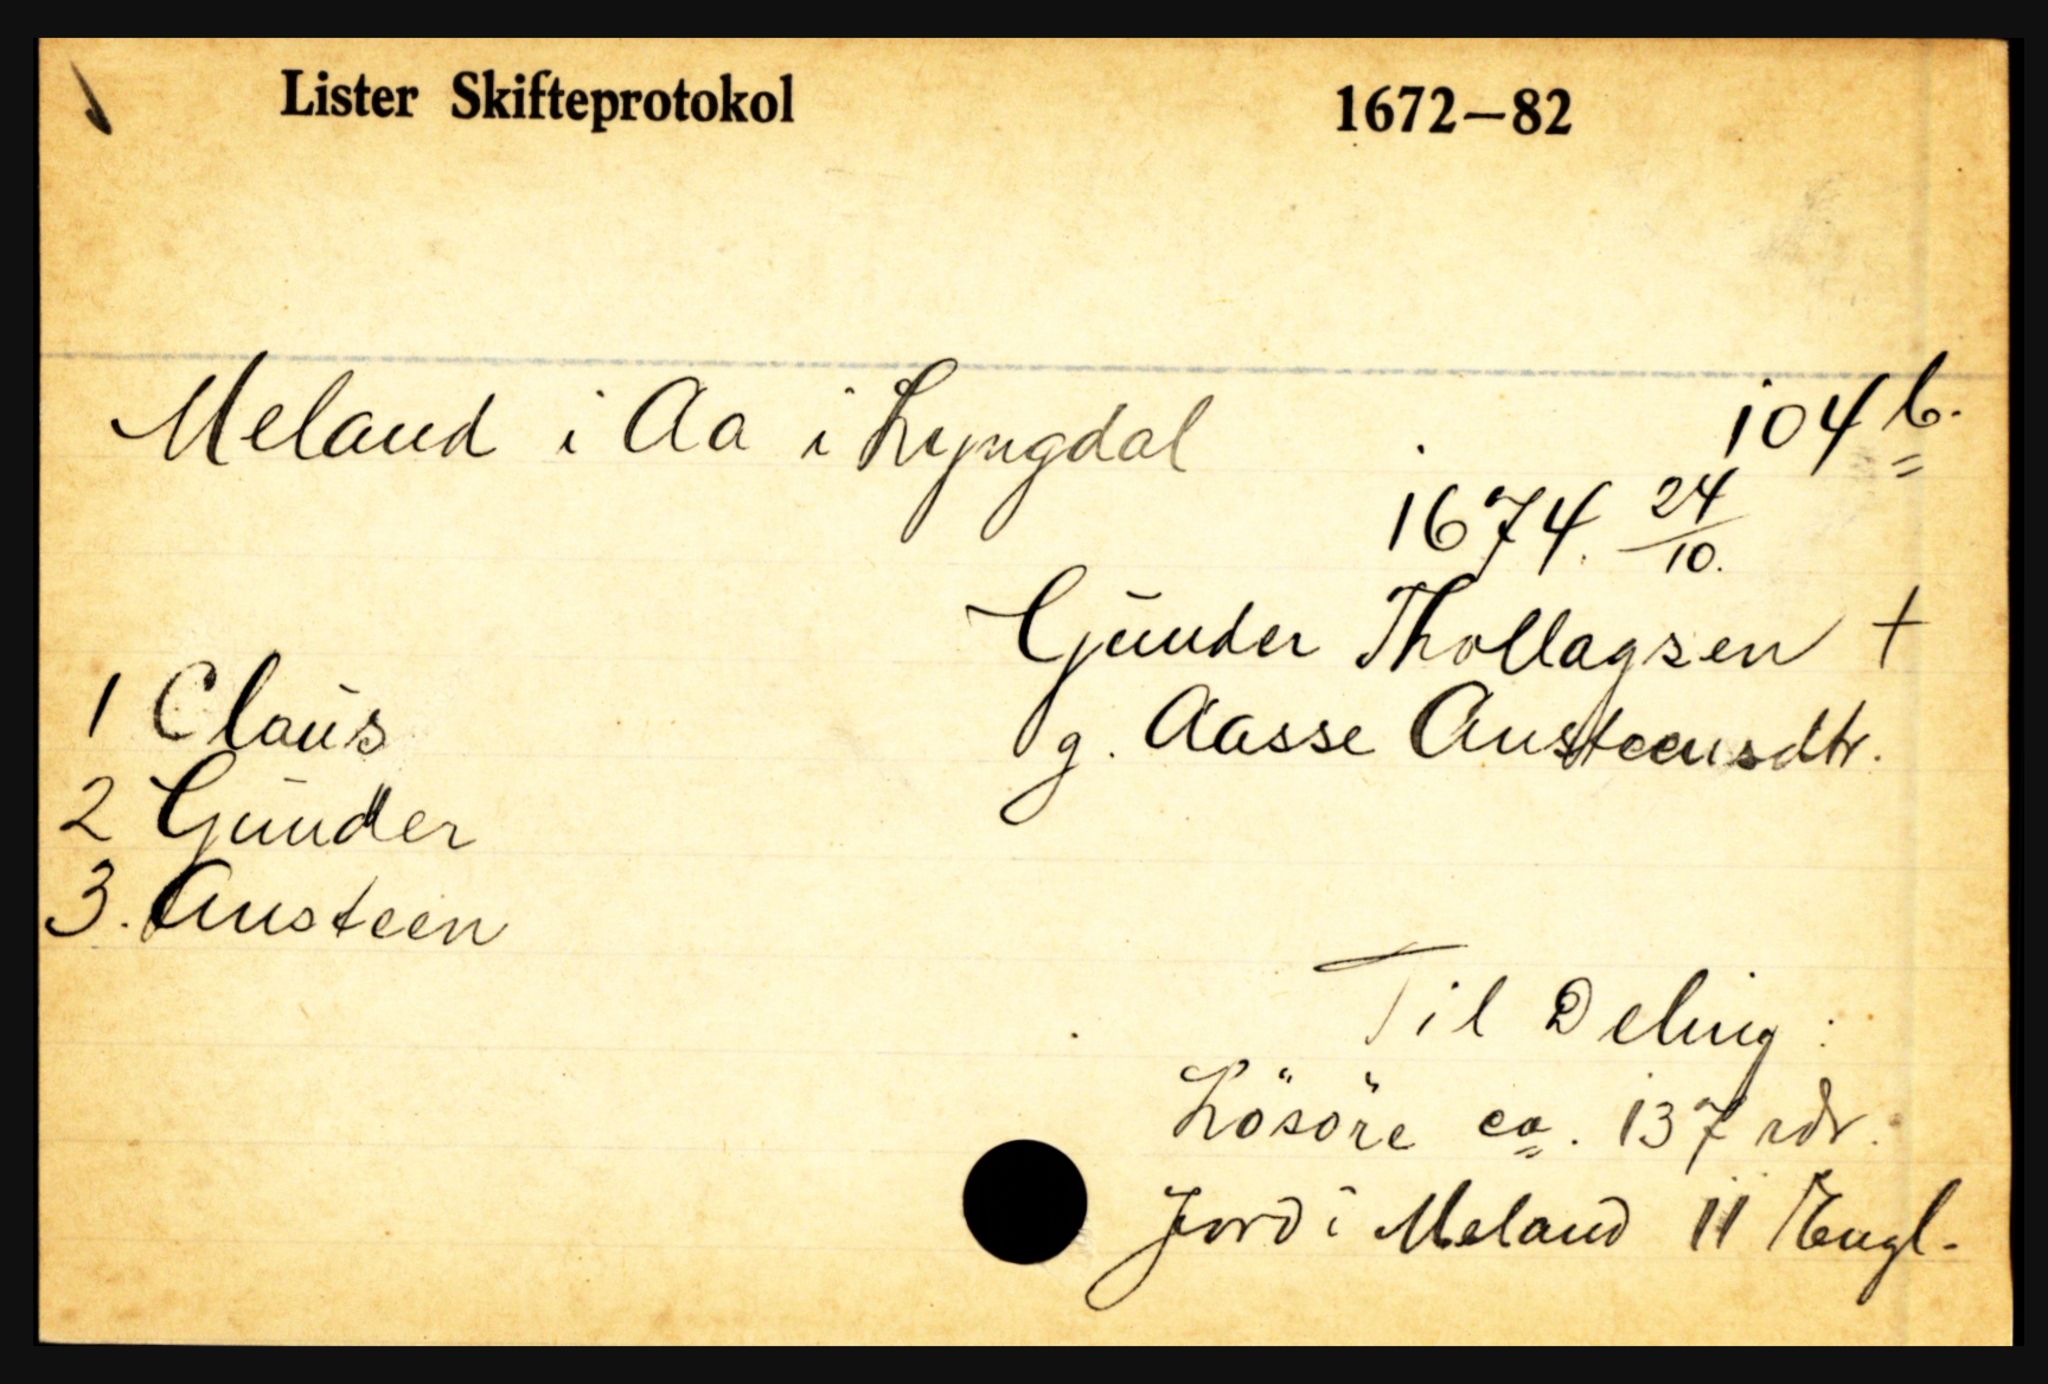 Lister Skifteprotokol 1672—82
Meland i Aa i Lyngdal 104 b.
1674. 24/10.
Gunder Thollagsen +
g. Aasse Austeensdtr.
1 Claus
2 Gunder
3. Austeen
Til Deling:
Lösöre ca. 137 rdr.
Jord i Meland 11 Engl.